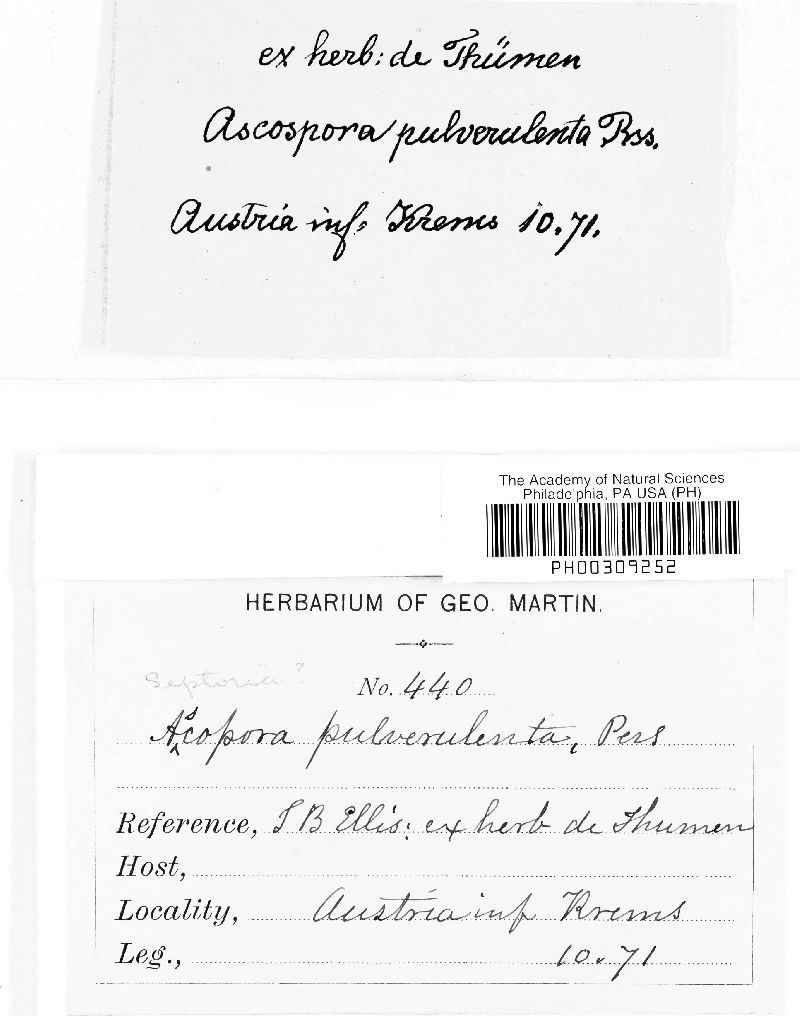 ex herb: de Thümen
Ascospora pulverulenta Rss.
Austria inf, Krems 10.71.
The Academy of Natural Sciences
Philadelphia, PA USA (PH)
PH00309252
HERBARIUM OF GEO. MARTIN.
Septoria?
No. 440
Ascopora pulverulenta, Pers
Reference, J B Ellis: ex herb de Thumen
Host,
Locality, Austria inf Krems
Leg., 10.71